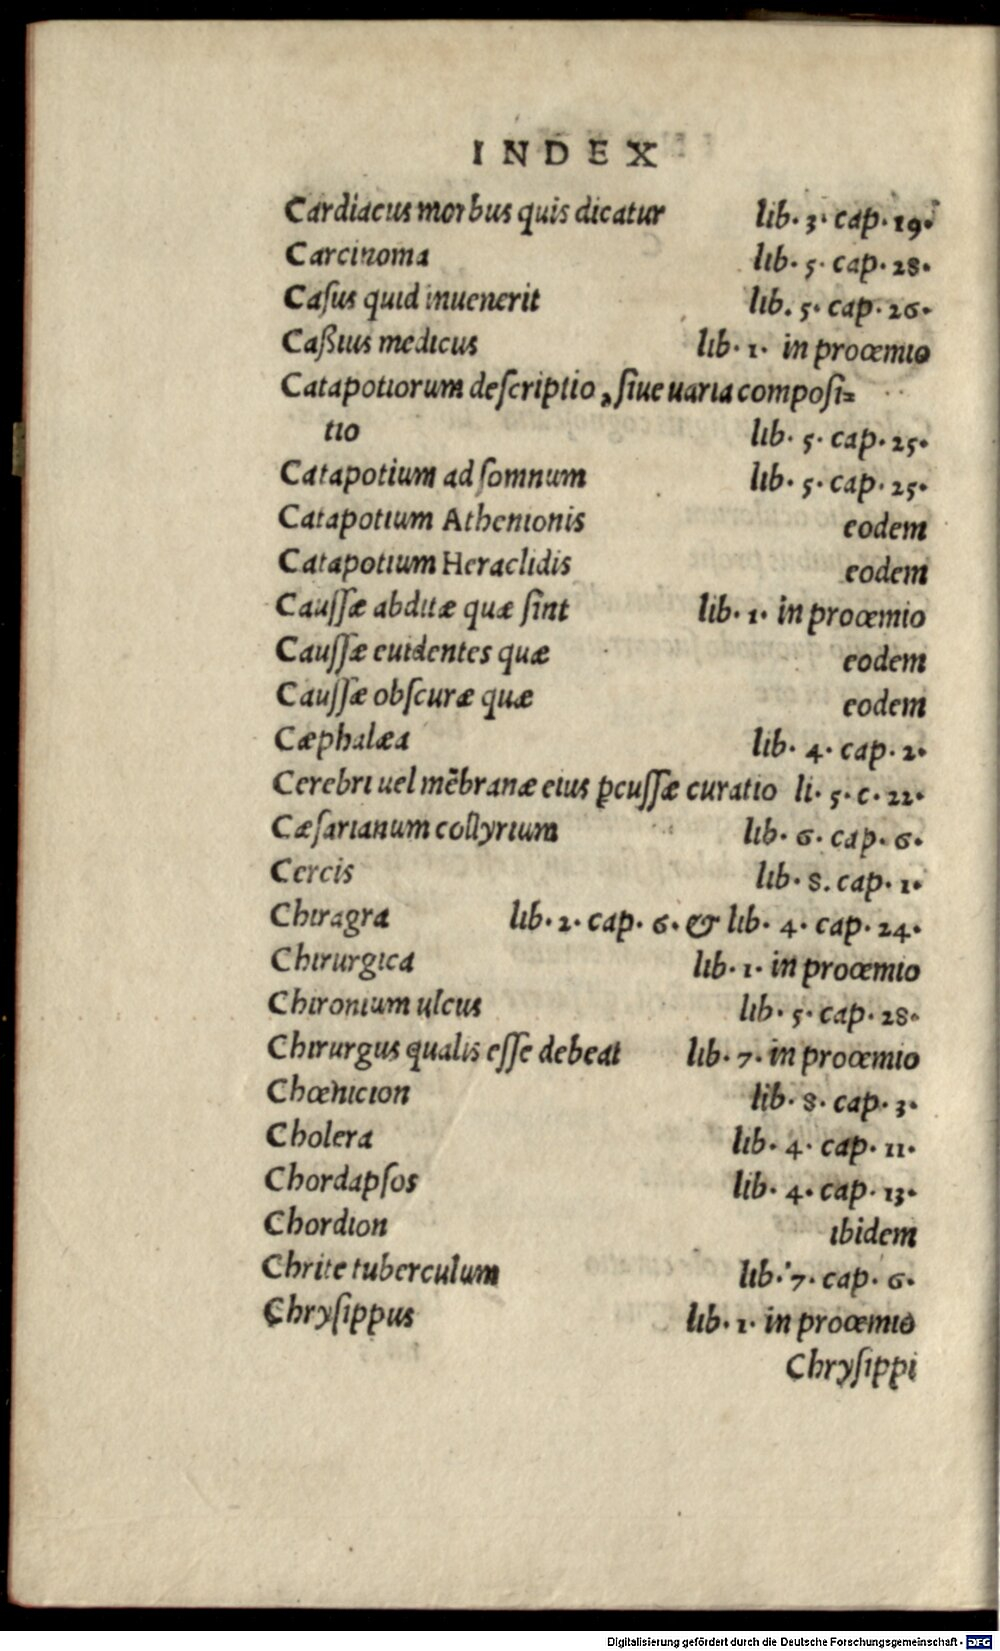 INDEX
Cardiacus morbus quis dicatur lib. 3. cap. 19.
Carcinoma lib. 5. cap. 28.
Caſus quid inuenerit lib. 5. cap. 26.
Caßius medicus lib. 1. in proœmio
Catapotiorum deſcriptio, ſiue uaria compoſi=
tio lib. 5. cap. 25.
Catapotium ad ſomnum lib. 5. cap. 25.
Catapotium Athenionis eodem
Catapotium Heraclidis eodem
Cauſſæ abditæ quæ ſint lib. 1. in proœmio
Cauſſæ euidentes quæ eodem
Cauſſæ obſcuræ quæ eodem
Cæphalæa lib. 4. cap. 2.
Cerebri uel mēbranæ eius ꝑcuſſæ curatio li. 5. c. 22.
Cæſarianum collyrium lib. 6. cap. 6.
Cercis lib. 8. cap. 1.
Chiragra lib. 2. cap. 6. & lib. 4. cap. 24.
Chirurgica lib. 1. in proœmio
Chironium ulcus lib. 5. cap. 28.
Chirurgus qualis eſſe debeat lib. 7. in proœmio
Chœnicion lib. 8. cap. 3.
Cholera lib. 4. cap. 11.
Chordapſos lib. 4. cap. 13.
Chordion ibidem
Chrite tuberculum lib. 7. cap. 6.
Chryſippus lib. 1. in proœmio
Chryſippi
Digitalisierung gefördert durch die Deutsche Forschungsgemeinschaft - DFG